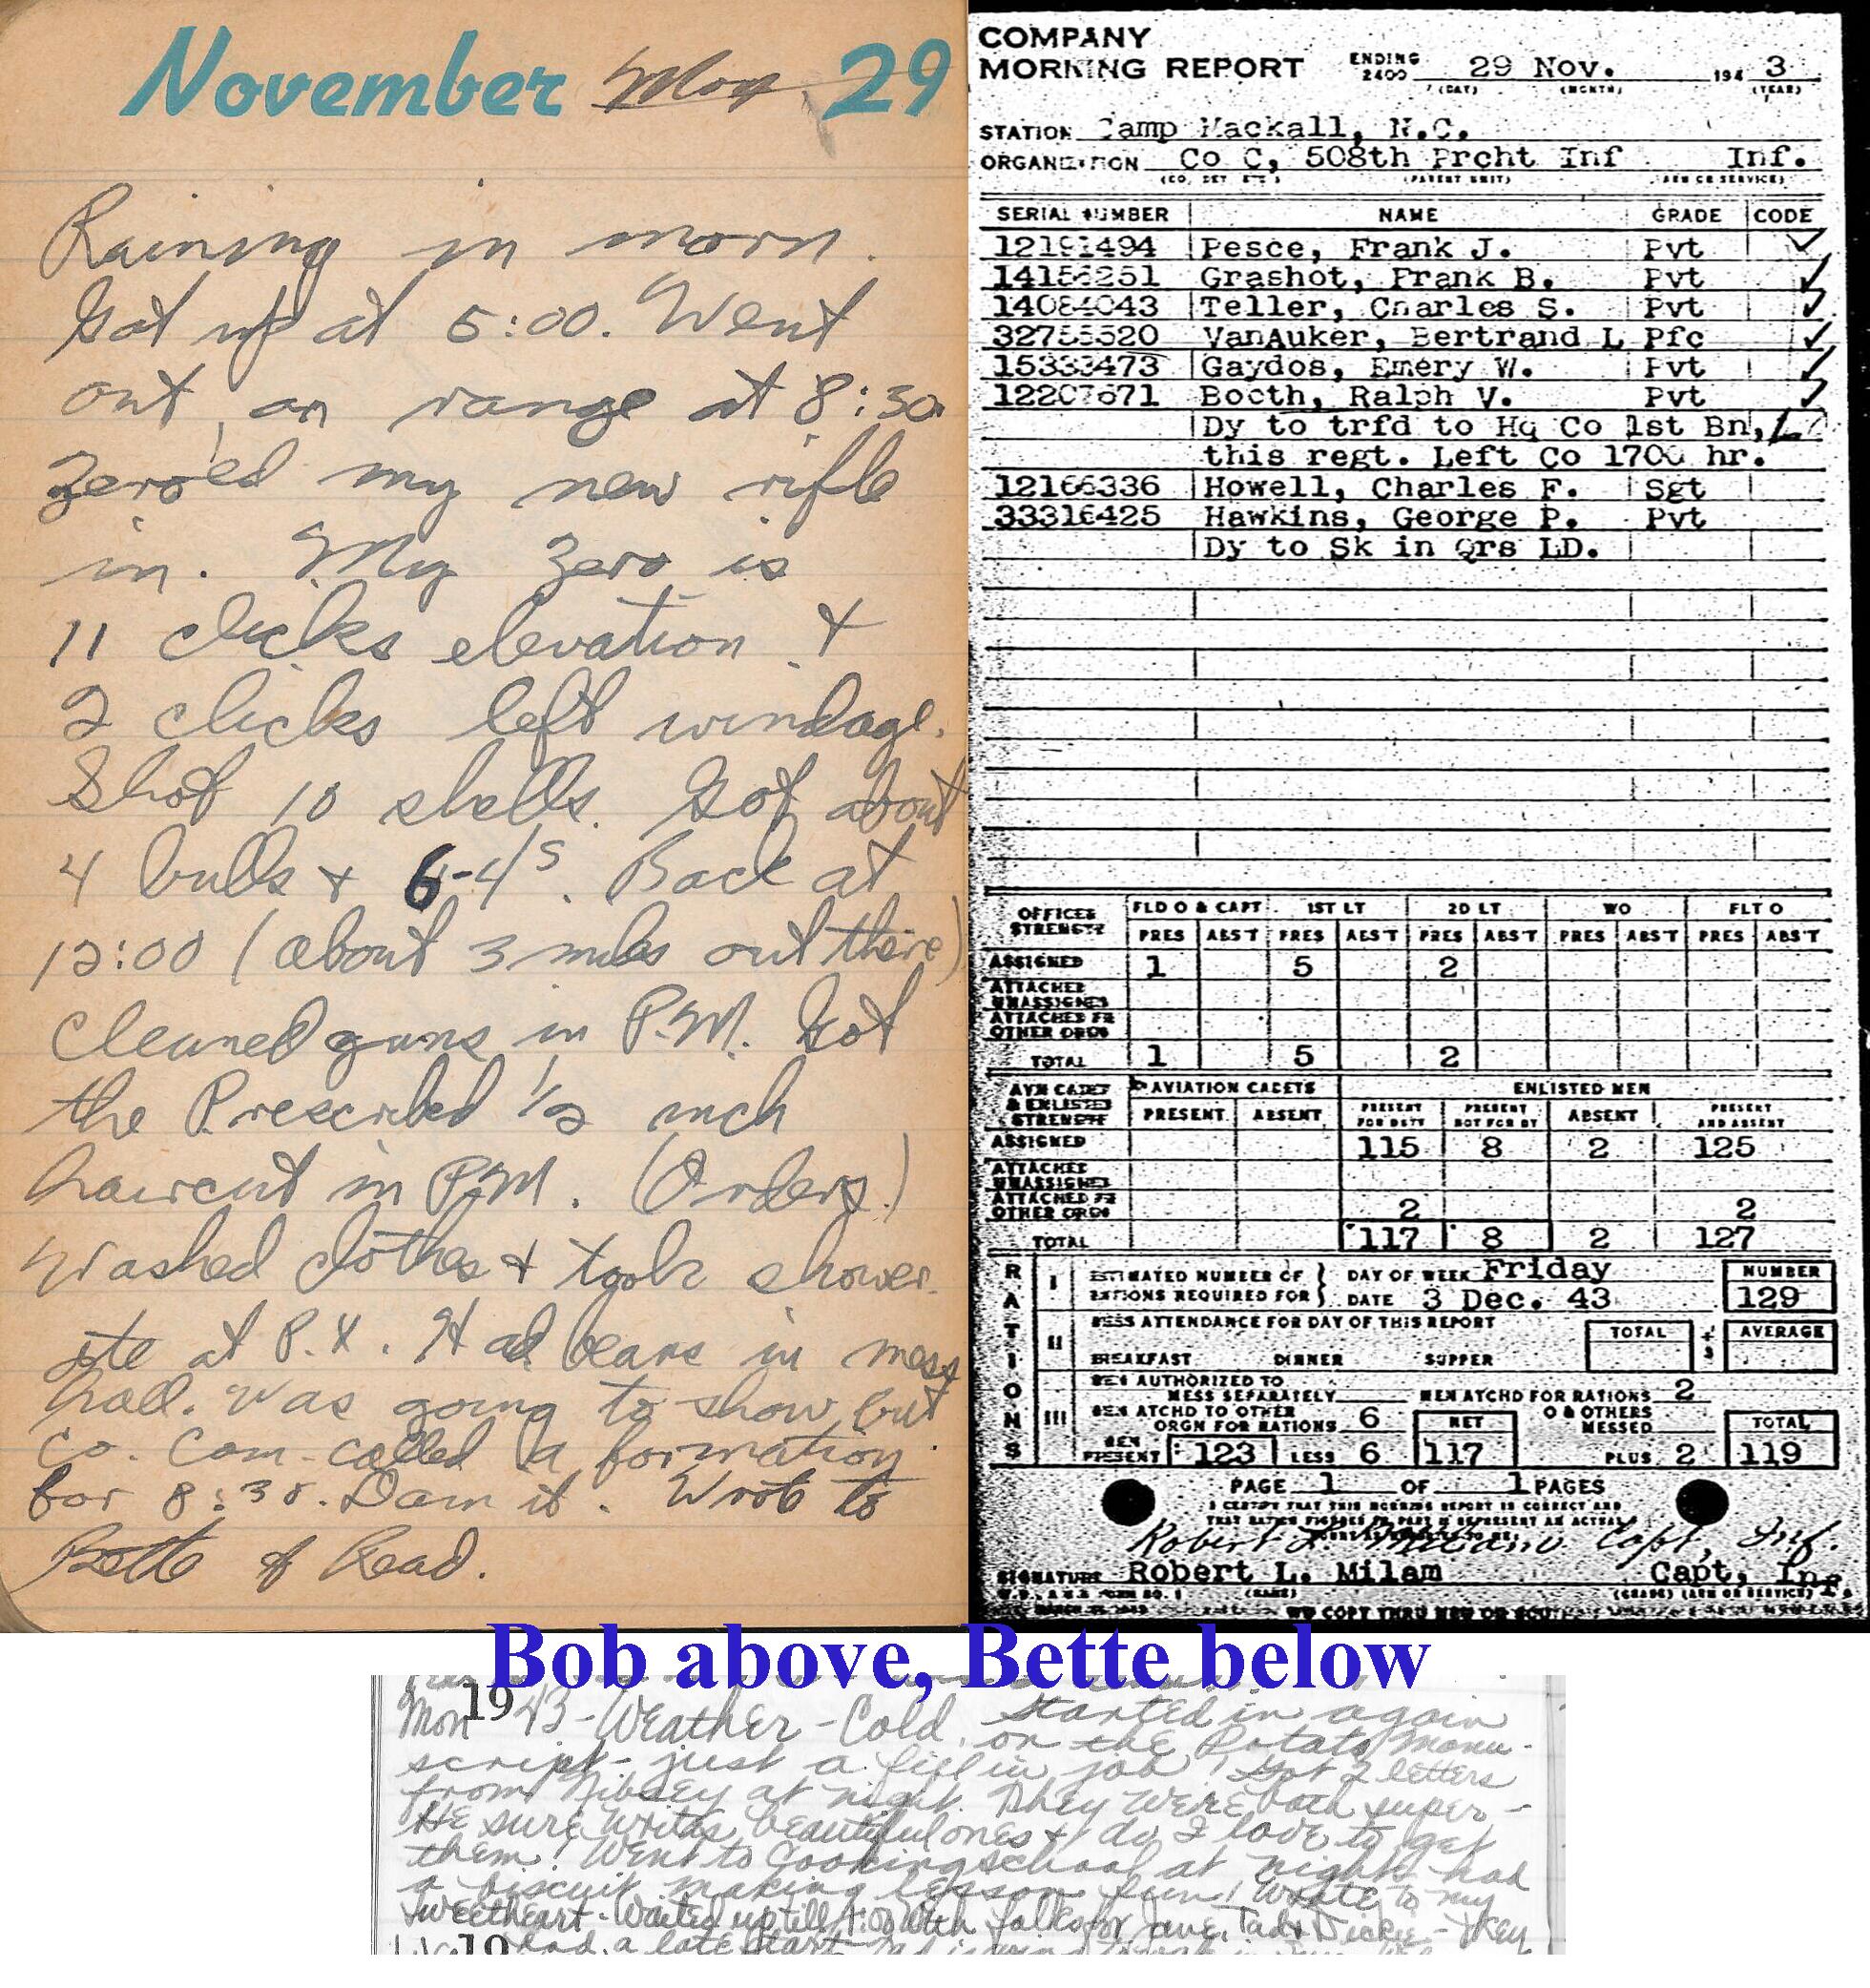 November Mon 29
Raining in morn.
Got up at 5:00. Went
out on range at 8:30
Zeroed my new rifle
in. My Zero is
11 clicks elevation +
2 clicks left windage.
Shot 10 shells. Got about
4 bulls + 6-4s. Back at
12:00 (about 3 miles out there)
Cleaned guns in P.M. Got
the Prescribed 1/2 inch
haircut in P.M. (Orders)
Washed clothes + took shower.
Ate at P.X. Had beans in mess
hall. Was going to show but
Co. Com. called a formation
for 8:30. Dam it. Wrote to
Bette & Read.
COMPANY
MORNING REPORT ENDING 2400 29 Nov. 194 3
(DAY) (MONTH) (YEAR)
STATION Camp Mackall, N.C.
ORGANIZATION Co C, 508th Prcht Inf Inf.
(CO, DET ETC) (PARENT UNIT) (ARM OR SERVICE)
SERIAL NUMBER NAME GRADE CODE
12191494 Pesce, Frank J. Pvt ✓
Grashot, Frank B. Pvt ✓
14084043 Teller, Charles S. Pvt ✓
VanAuker, Bertrand L Pfc ✓
15333473 Gaydos, Emery W. Pvt ✓
Booth, Ralph V. Pvt ✓
Dy to trfd to Hq Co 1st Bn,
this regt. Left Co 1700 hr.
12166336 Howell, Charles F. Sgt
33316425 Hawkins, George P. Pvt
Dy to Sk in Qrs LD.
OFFICES STRENGTH FLD O & CAPT 1ST LT 2D LT WO FLT O
PRES ABS'T PRES ABS'T PRES ABS'T PRES ABS'T PRES ABS'T
ASSIGNED 1 5 2
ATTACHED UNASSIGNED
ATTACHED FR OTHER ORGN
TOTAL 1 5 2
AVN CADET & ENLISTED STRENGTH AVIATION CADETS ENLISTED MEN
PRESENT ABSENT PRESENT FOR DUTY PRESENT NOT FOR DY ABSENT PRESENT AND ABSENT
ASSIGNED 115 8 2 125
ATTACHED UNASSIGNED
ATTACHED FR OTHER ORGN 2 2
TOTAL 117 8 2 127
RATIONS
I ESTIMATED NUMBER OF RATIONS REQUIRED FOR DAY OF WEEK Friday NUMBER
DATE 3 Dec. 43 129
II MESS ATTENDANCE FOR DAY OF THIS REPORT TOTAL ÷ 3 AVERAGE
BREAKFAST DINNER SUPPER
III MEN AUTHORIZED TO MESS SEPARATELY MEN ATCHD FOR RATIONS 2
MEN ATCHD TO OTHER ORGN FOR RATIONS 6 NET O & OTHERS MESSED TOTAL
MEN PRESENT 123 LESS 6 117 PLUS 2 119
PAGE 1 OF 1 PAGES
I CERTIFY THAT THIS MORNING REPORT IS CORRECT AND
Robert L. Milam Capt, Inf.
SIGNATURE Robert L. Milam Capt, Inf.
(NAME) (GRADE) (ARM OR SERVICE)
Bob above, Bette below
Mon 19 43 - Weather - Cold. Started in again
on the Potato Manu-
script - just a fill in job! Got 2 letters
from Nibsey at night. They were both super -
He sure writes beautiful ones & do I love to get
them! Went to Cooking school at night - had
a biscuit making lesson fun! Wrote to my
sweetheart - Waited up till with folks for Jane, Tad & Dickie - They
19 had a late start